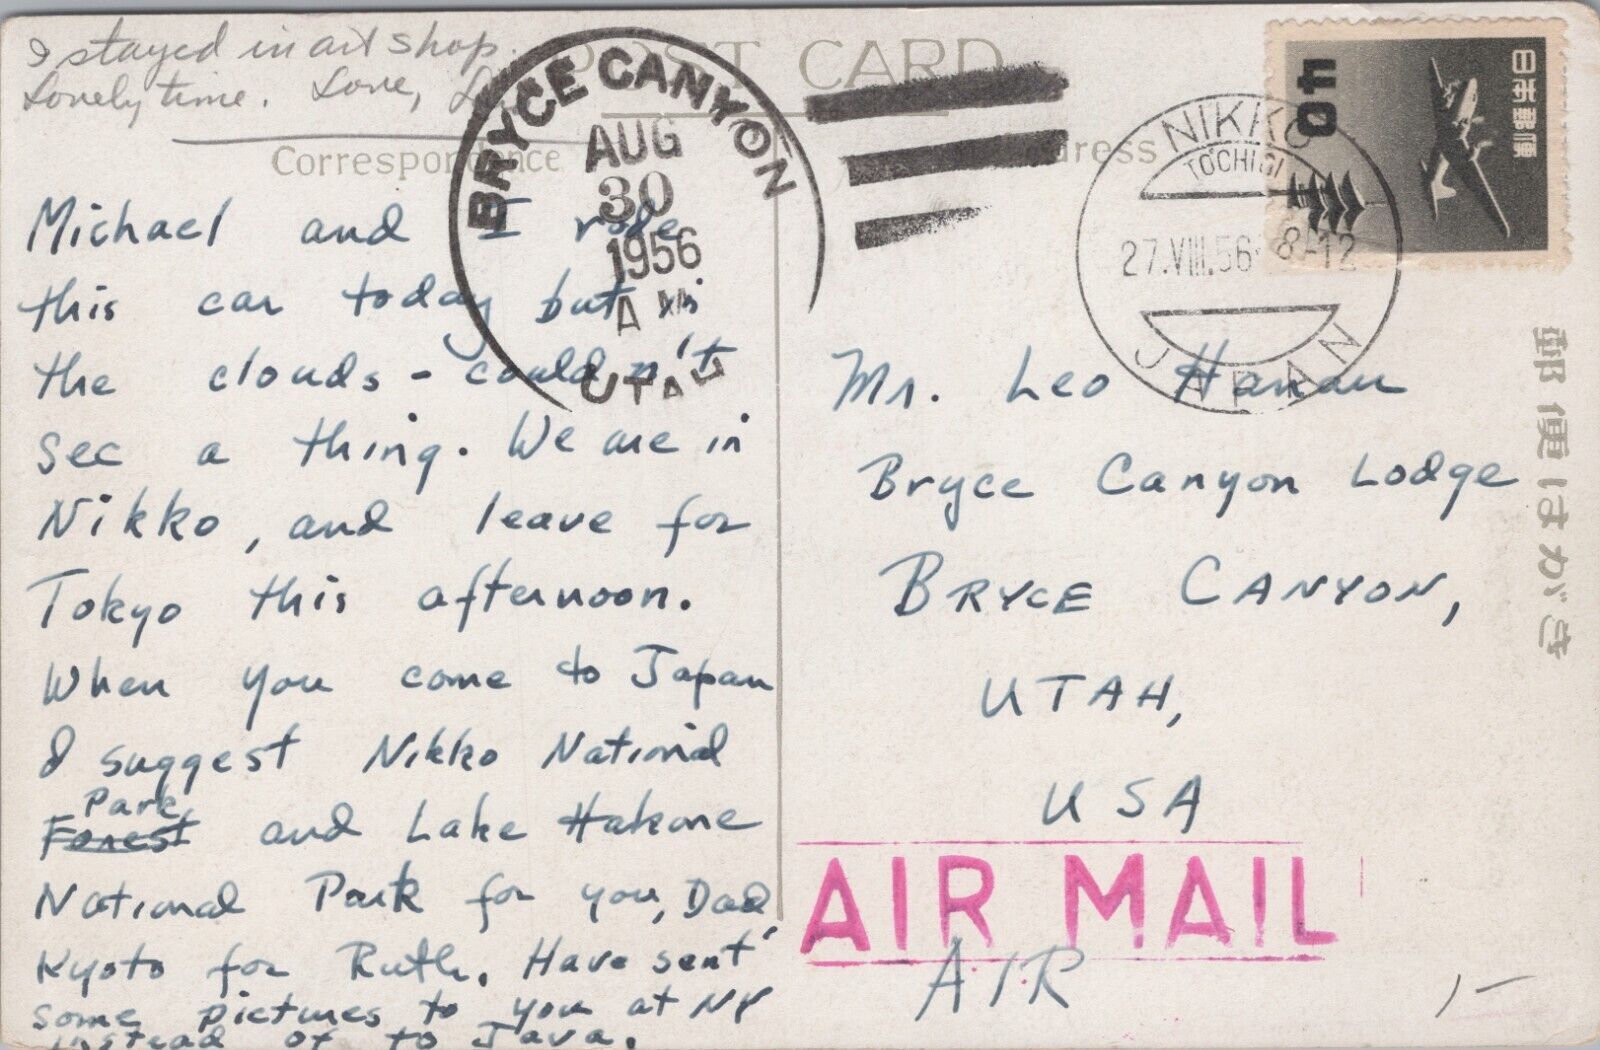 I stayed in art shop.
Lovely time. Love,
POST CARD
Correspondence
Address
BRYCE CANYON
AUG
30
1956
AM
UTAH
NIKKO
TOCHIGI
27.VIII.56 8-12
JAPAN
40
日本郵便
郵便はがき
Michael and I rode
this car today but in
the clouds - couldn't
see a thing. We are in
Nikko, and leave for
Tokyo this afternoon.
When you come to Japan
I suggest Nikko National
Park
Forest and Lake Hakone
National Park for you, Dad,
Kyoto for Ruth. Have sent
some pictures to you at NY
instead of to Java.
Mr. Leo Hanau
Bryce Canyon Lodge
BRYCE CANYON,
UTAH,
USA
AIR MAIL
AIR
1-